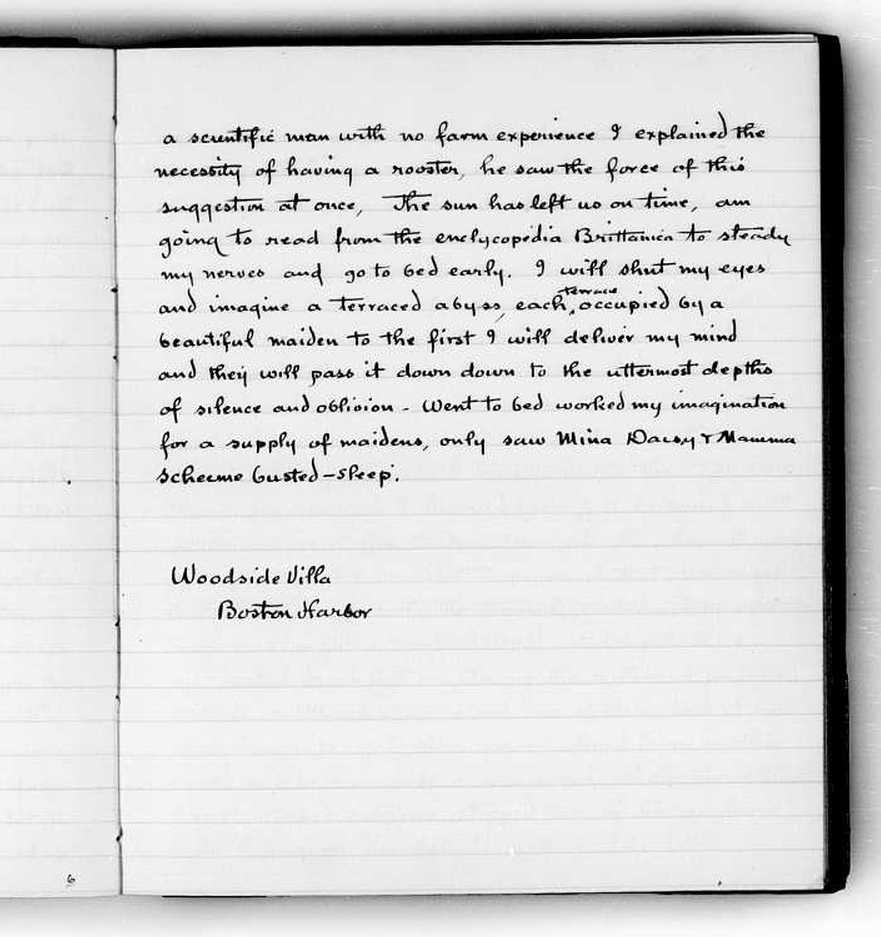 a scientific man with no farm experience I explained the
necessity of having a rooster, he saw the force of this
suggestion at once, The sun has left us on time, am
going to read from the enclycopedia Brittanica to steady
my nerves and go to bed early. I will shut my eyes
and imagine a terraced abyss, each terrace occupied by a
beautiful maiden to the first I will deliver my mind
and they will pass it down down to the uttermost depths
of silence and oblivion - Went to bed worked my imagination
for a supply of maidens, only saw Mina Daisy & Mamma
Scheme busted - sleep.
Woodside Villa
Boston Harbor
6